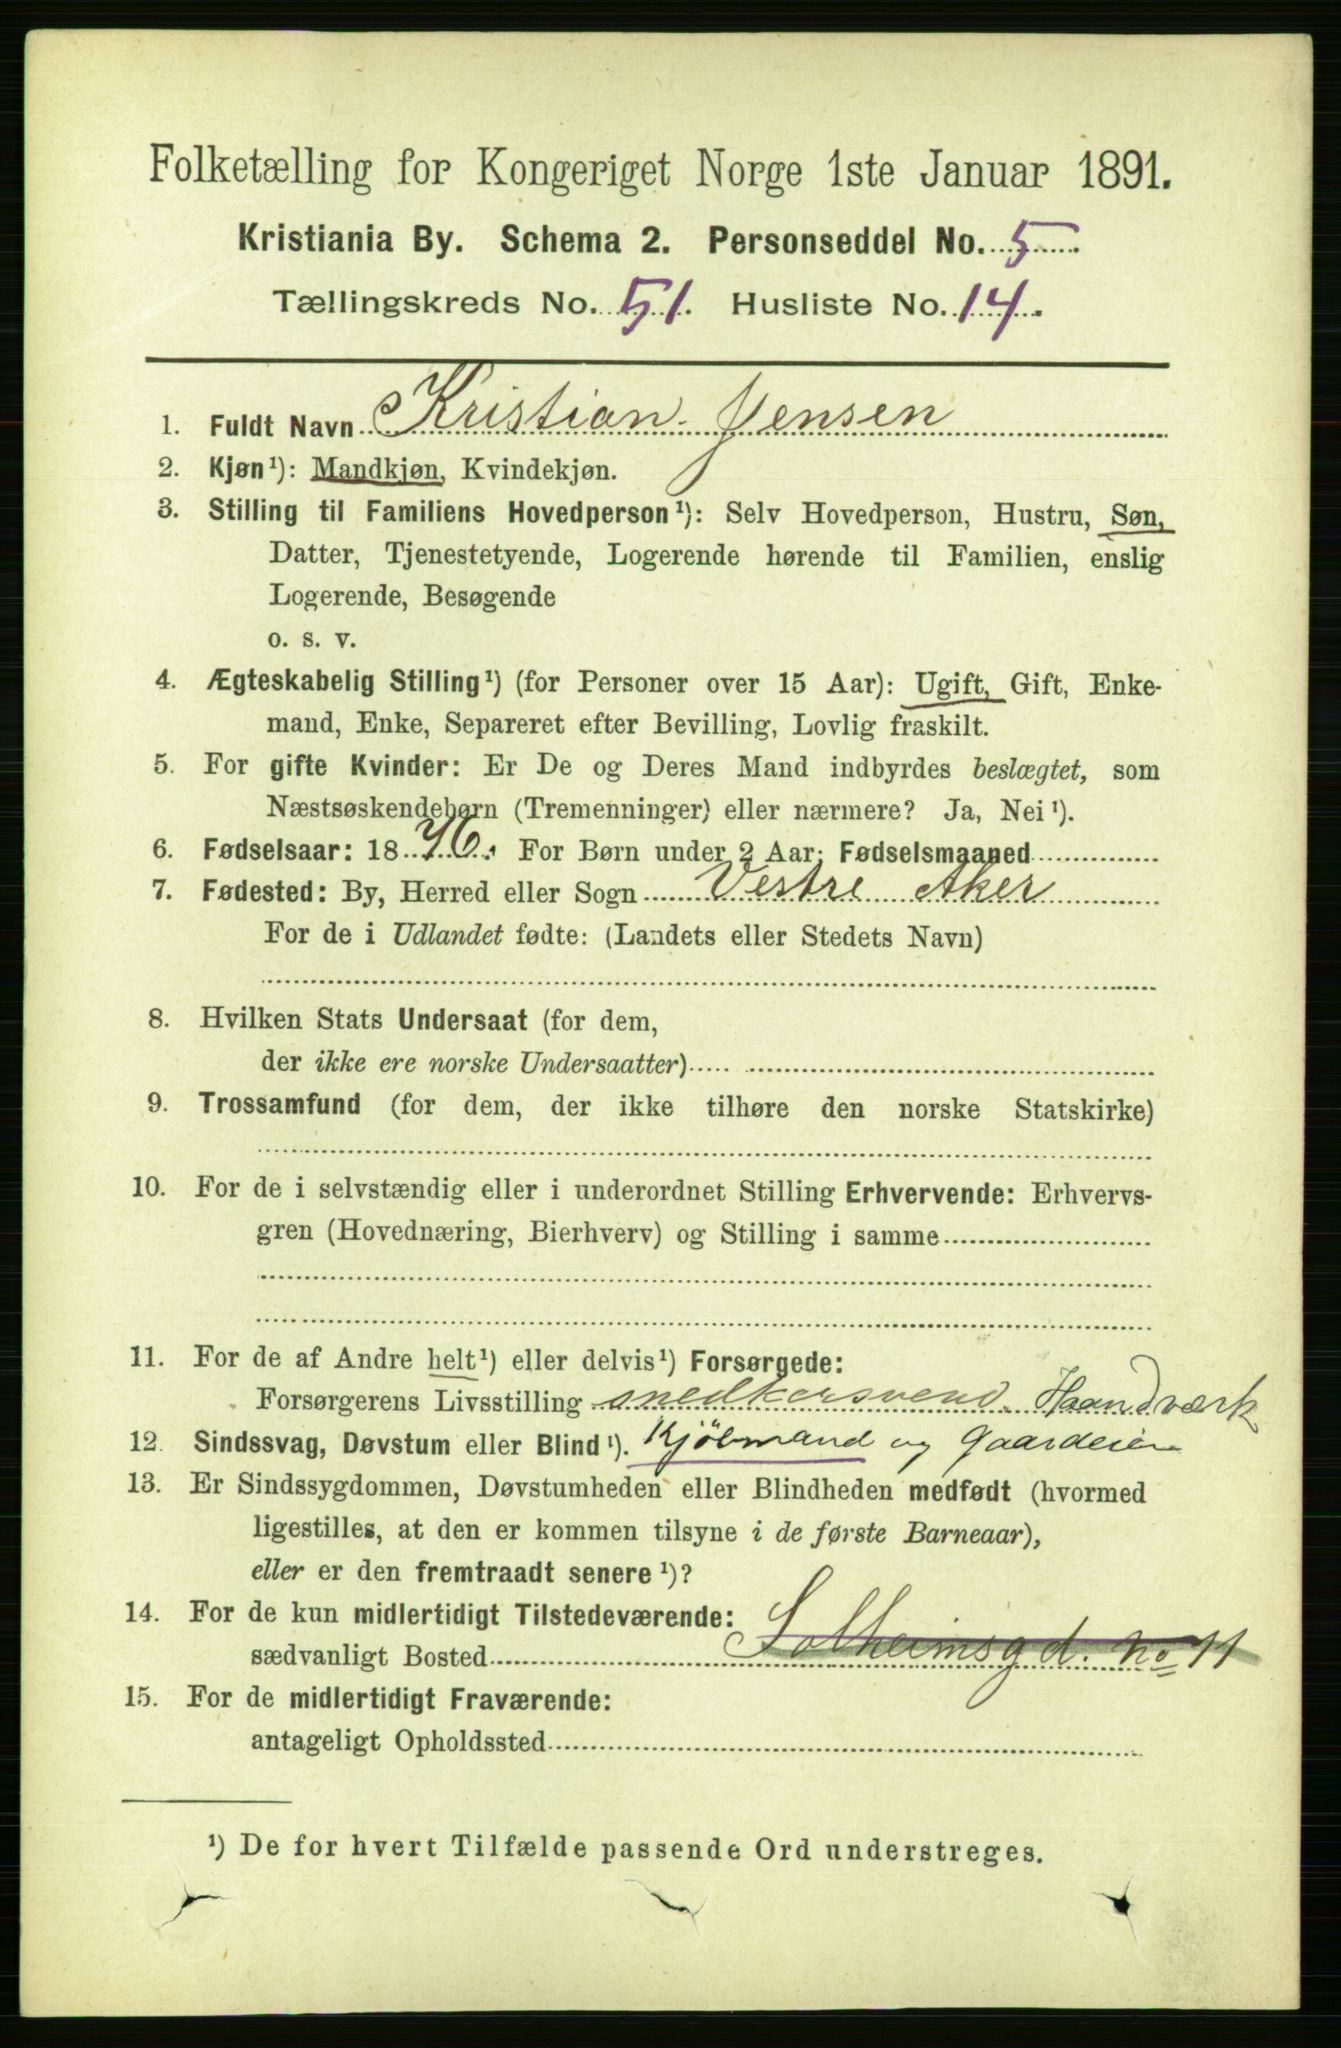 Folketælling for Kongeriget Norge 1ste Januar 1891.
Kristiania By. Schema 2. Personseddel No. 5
Tællingskreds No. 51. Husliste No. 14.
1. Fuldt Navn Kristian Jensen
2. Kjøn¹): Mandkjøn, Kvindekjøn.
3. Stilling til Familiens Hovedperson¹): Selv Hovedperson, Hustru, Søn,
Datter, Tjenestetyende, Logerende hørende til Familien, enslig
Logerende, Besøgende
o. s. v.
4. Ægteskabelig Stilling¹) (for Personer over 15 Aar): Ugift, Gift, Enke-
mand, Enke, Separeret efter Bevilling, Lovlig fraskilt.
5. For gifte Kvinder: Er De og Deres Mand indbyrdes beslægtet, som
Næstsøskendebørn (Tremenninger) eller nærmere? Ja, Nei¹).
6. Fødselsaar: 1876. For Børn under 2 Aar: Fødselsmaaned
7. Fødested: By, Herred eller Sogn Vestre Aker
For de i Udlandet fødte: (Landets eller Stedets Navn)
8. Hvilken Stats Undersaat (for dem,
der ikke ere norske Undersaatter)
9. Trossamfund (for dem, der ikke tilhøre den norske Statskirke)
10. For de i selvstændig eller i underordnet Stilling Erhvervende: Erhvervs-
gren (Hovednæring, Bierhverv) og Stilling i samme
11. For de af Andre helt¹) eller delvis¹) Forsørgede:
Forsørgerens Livsstilling snedkersvend. Haandværk
12. Sindssvag, Døvstum eller Blind¹). Kjöbmand og Gaardeier
13. Er Sindssygdommen, Døvstumheden eller Blindheden medfødt (hvormed
ligestilles, at den er kommen tilsyne i de første Barneaar),
eller er den fremtraadt senere¹)?
14. For de kun midlertidigt Tilstedeværende:
sædvanligt Bosted Solheimsgd. No 11
15. For de midlertidigt Fraværende:
antageligt Opholdssted
¹) De for hvert Tilfælde passende Ord understreges.